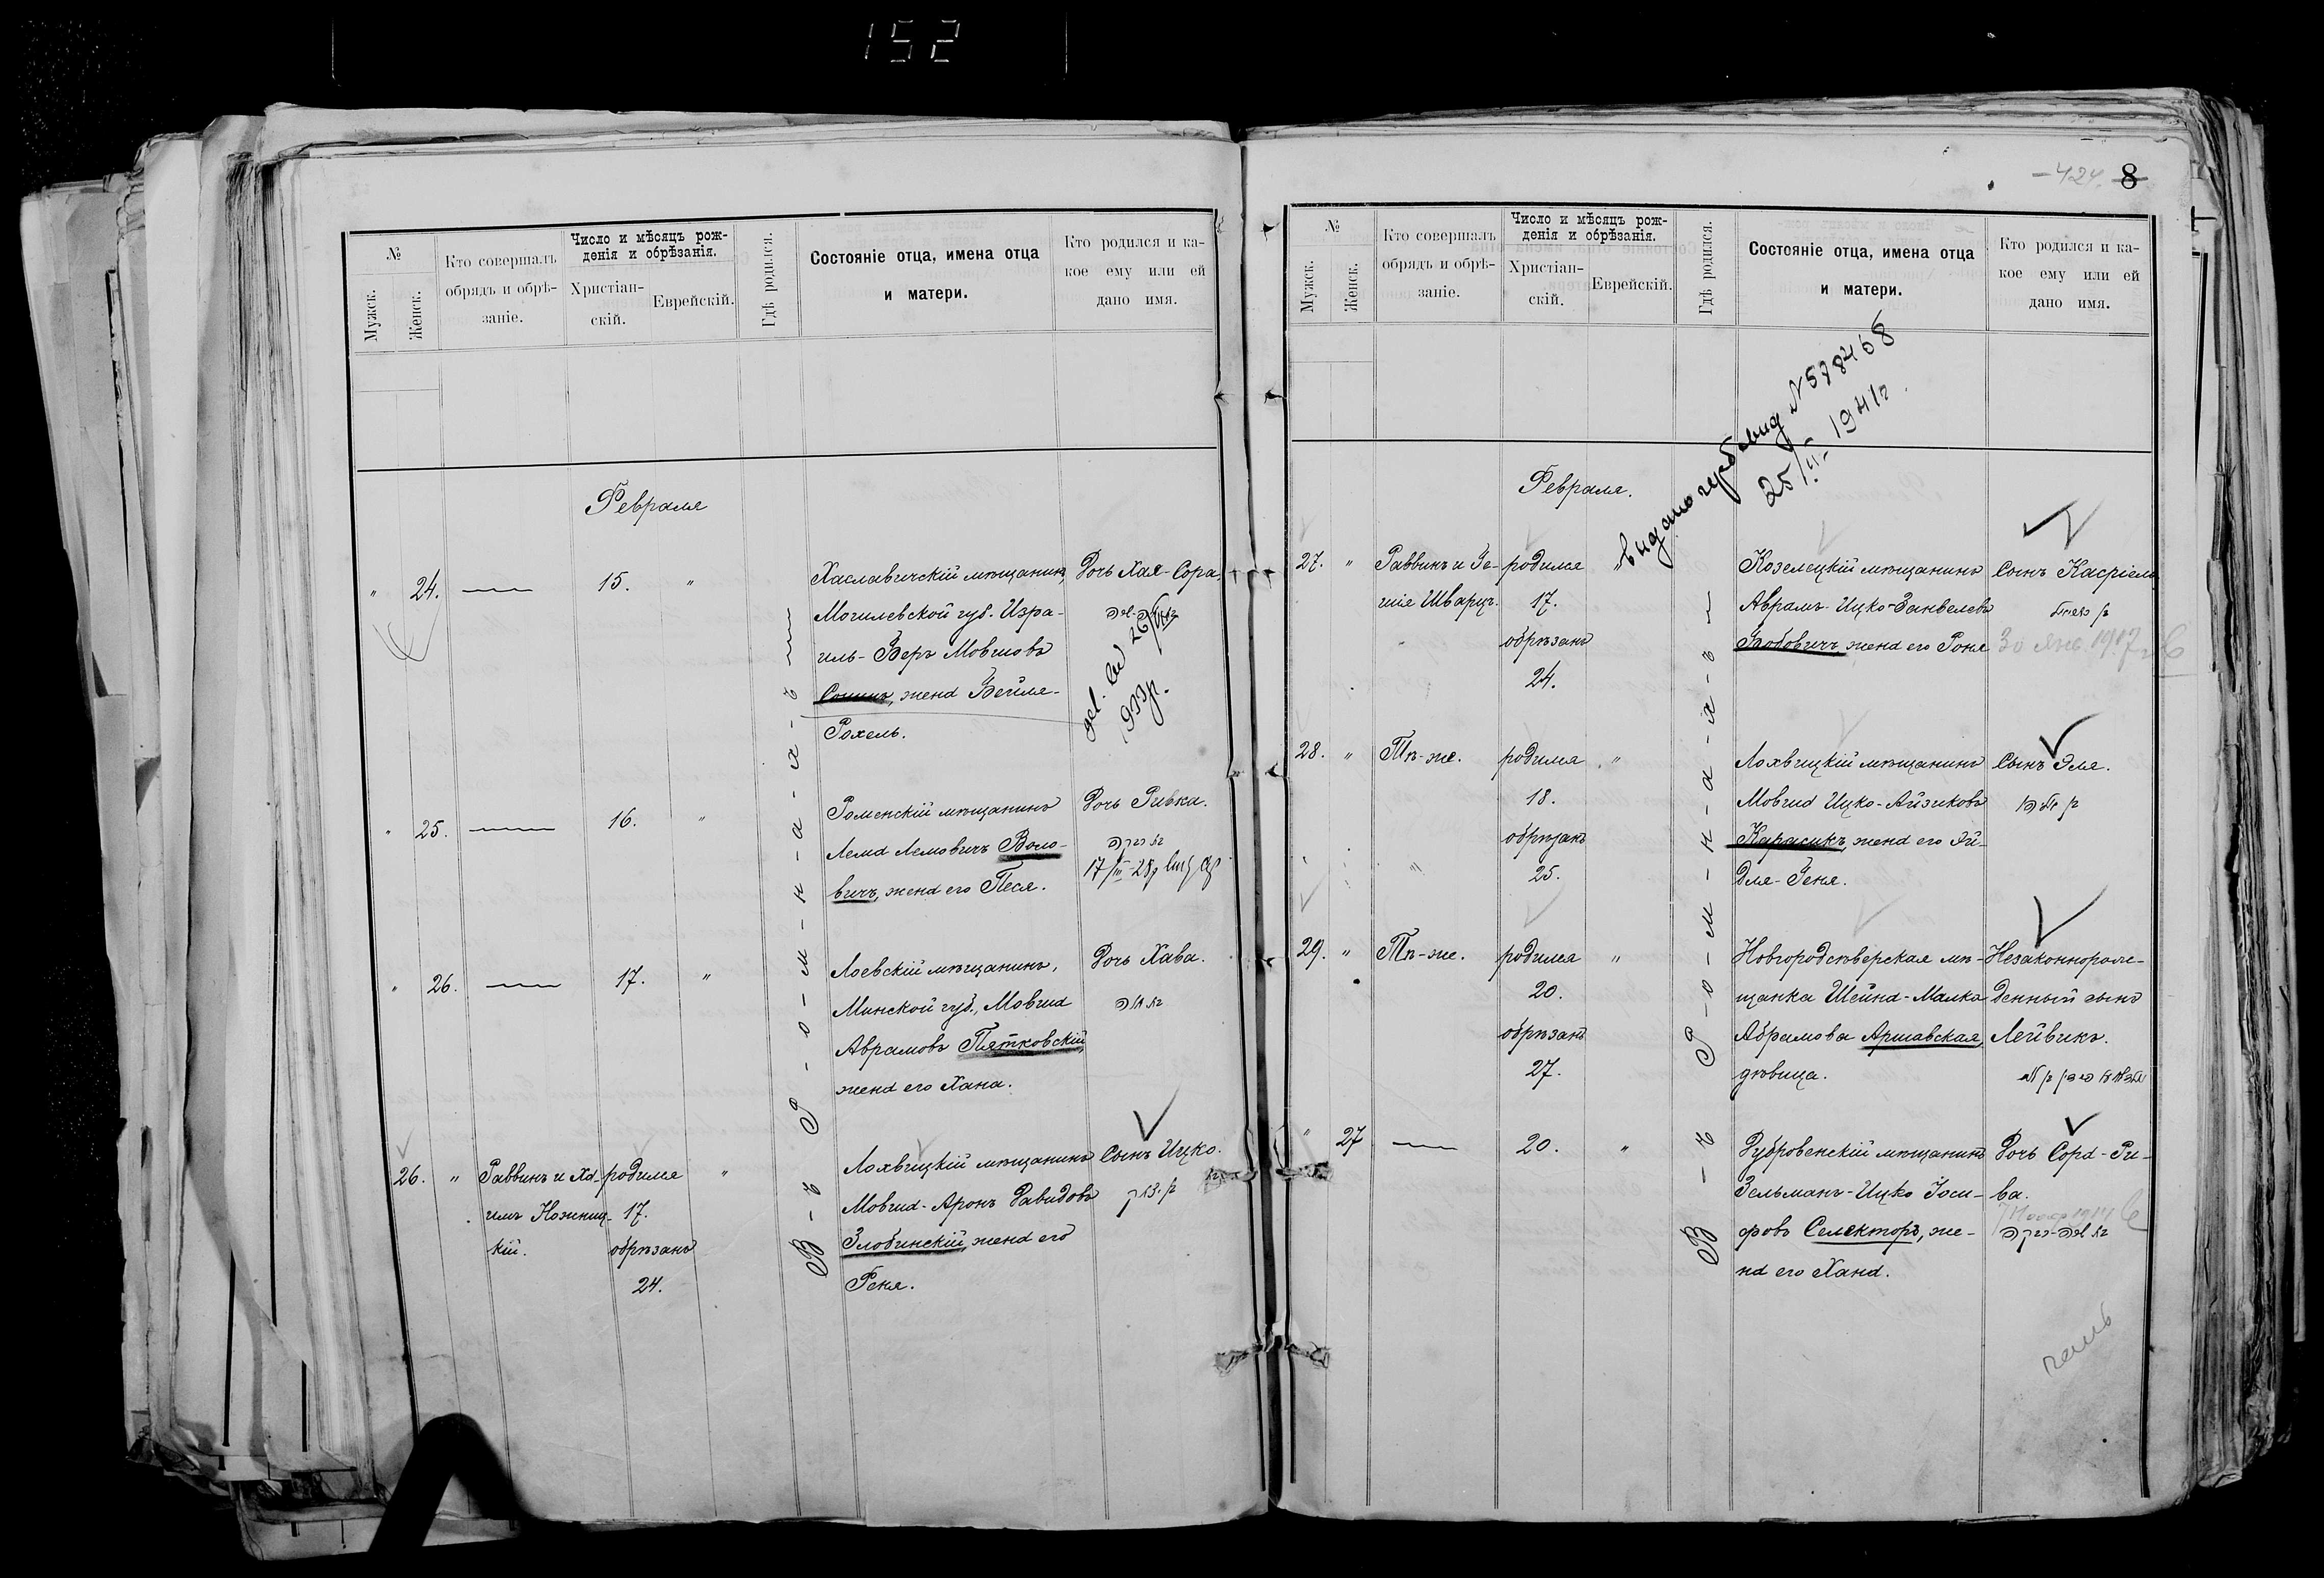 152
№
Мужск.
Женск.
Кто совершалъ обрядъ и обрѣ-заніе.
Число и мѣсяцъ рож-
денія и обрѣзанія.
Христіан-
скій.
Еврейскій.
Гдѣ родился.
Состояніе отца, имена отца
и матери.
Кто родился и ка-
кое ему или ей
дано имя.
Февраля
" 24. 15. "
Хаславичскій мѣщанинъ,
Могилевской губ. Изра-
иль-Беръ Мовшовъ
Сонинъ, жена Бейля-
Рохель.
Дочь Хая-Сора.
" 25. 16. "
Роменскій мѣщанинъ
Лема Лемовичъ Воло-
вичъ, жена его Песя.
Дочь Ривка.
בת רבקה
" 26. 17. "
Лоевскій мѣщанинъ,
Минской губ., Мовша
Аврамовъ Пятковскій,
жена его Хана.
Дочь Хава.
בת חוה
26. " Раввинъ и Ха-
имъ Ножниц-
кій.
родился
17.
обрѣзанъ
24.
"
Лохвицкій мѣщанинъ
Мовша-Аронъ Давидовъ
Злобинскій, жена его
Реня.
Сынъ Ицко.
В-ъ Р-о-м-н-а-х-ъ
424. 8
№
Мужск.
Женск.
Кто совершалъ
обрядъ и обрѣ-
заніе.
Число и мѣсяцъ рож-
денія и обрѣзанія.
Христіан-
скій.
Еврейскій.
Гдѣ родился.
Состояніе отца, имена отца
и матери.
Кто родился и ка-
кое ему или ей
дано имя.
N 578468
25/II- 1941г.
Февраля.
27. " Раввинъ и Ге-
шія Шварцъ.
родился
17.
обрѣзанъ
24.
"
Козелецкій мѣщанинъ
Аврамъ-Ицко-Занвелевъ
Бобовичъ, жена его Роня
Сынъ Касріель
30 янв. 1917 г.
28. " Тѣ-же.
родился
18.
обрѣзанъ
25.
"
Лохвицкій мѣщанинъ
Мовша Ицко-Айзиковъ
Карасикъ, жена его Эй-
для-Геня.
Сынъ Эля.
בן אליה
29. " Тѣ-же.
родился
20.
обрѣзанъ
27.
"
Новгородсѣверская мѣ-
щанка Шейна-Малка
Абрамова Аршавская,
дѣвица.
Незаконнорож-
денный сынъ
Лейвикъ.
" 27 20. "
Дубровенскій мѣщанинъ
Зельманъ-Ицко Іоси-
фовъ Селекторъ, же-
на его Хана.
Дочь Сора-Ри-
ва.
בת שרה-רבקה
В-ъ Р-о-м-н-а-х-ъ